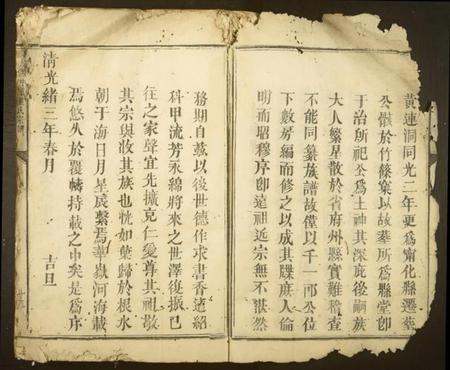 黃連洞同光二年更爲甯化縣遷葬
公骸於竹篠窠以故墓所爲縣堂卽
于治所祀公爲土神其深庇後嗣族
大人繁星散於省府州縣實難稽查
不能同纂族譜故僅以千一郎公位
下數房編而修之以成其牒庶人倫
明而昭穆序卽遠祖近宗無不湛然
務期自茲以後世德作求書香遠紹
科甲流芳永綿將來之世澤復振已
往之家聲宜先擴克仁愛尊其祖敬
其宗與收其族也恍如葉歸於根水
朝于海日月星辰繫焉華嶽河海載
焉悠久於覆幬持載之中矣是爲序
清光緒三年春月 吉旦